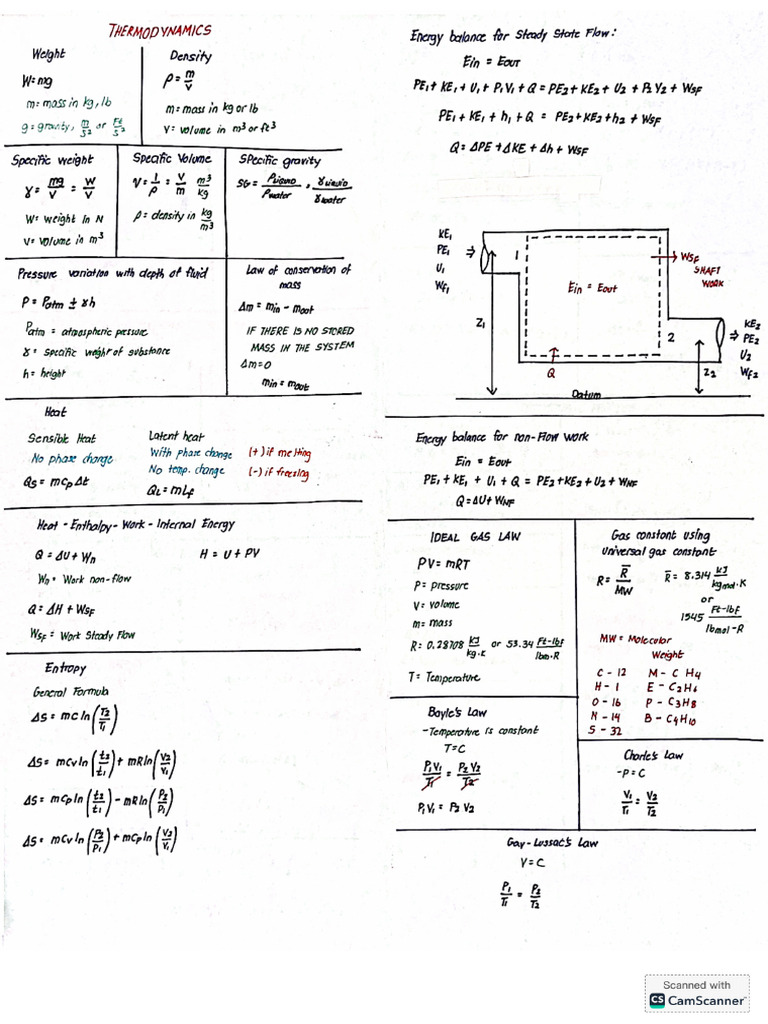 THERMODYNAMICS
Weight
W=mg
m=mass in kg, lb
g=gravity, m/s² or ft/s²
Density
ρ = m/v
m=mass in kg or lb
v=volume in m³ or ft³
Specific weight
γ = mg/v = W/v
W=weight in N
v=volume in m³
Specific Volume
V = 1/ρ = V/m m³/kg
ρ=density in kg/m³
Specific gravity
SG = ρLIQUID/ρwater , γLIQUID/γwater
Pressure variation with depth of fluid
P = Patm ± γh
Patm = atmospheric pressure
γ = specific weight of substance
h = height
Law of conservation of
mass
Δm = min - mout
IF THERE IS NO STORED
MASS IN THE SYSTEM
Δm=0
min = mout
Heat
Sensible Heat
No phase change
Qs = mCpΔt
Latent heat
With phase change (+) if melting
No temp. change (-) if freezing
QL = mLf
Heat - Enthalpy - Work - Internal Energy
Q = ΔU + Wn
H = U + PV
Wn = Work non-flow
Q = ΔH + Wsf
Wsf = Work Steady Flow
Entropy
General Formula
ΔS = mC ln(T2/T1)
ΔS = mCv ln(t2/t1) + mR ln(V2/V1)
ΔS = mCp ln(t2/t1) - mR ln(P2/P1)
ΔS = mCv ln(P2/P1) + mCp ln(V2/V1)
Energy balance for Steady State Flow:
Ein = Eout
PE1 + KE1 + U1 + P1V1 + Q = PE2 + KE2 + U2 + P2V2 + WSF
PE1 + KE1 + h1 + Q = PE2 + KE2 + h2 + WSF
Q = ΔPE + ΔKE + Δh + WSF
KE1
PE1
U1
Wf1
1
Ein = Eout
WSF
SHAFT
WORK
Z1
Q
2
Z2
KE2
PE2
U2
Wf2
Datum
Energy balance for non-Flow work
Ein = Eout
PE1 + KE1 + U1 + Q = PE2 + KE2 + U2 + WNF
Q = ΔU + WNF
IDEAL GAS LAW
PV = mRT
P = pressure
V = volume
m = mass
R = 0.28708 kJ/kg.K or 53.34 Ft-lbf/lbm.R
T = Temperature
Gas constant using
universal gas constant
R = R̄/MW R̄ = 8.314 kJ/kgmol.K
or
1545 Ft-lbf/lbmol-R
MW = Molecular
Weight
C - 12 M - C H4
H - 1 E - C2H6
O - 16 P - C3H8
N - 14 B - C4H10
S - 32
Boyle's Law
-Temperature is constant
T=C
P1V1/T1 = P2V2/T2
P1V1 = P2V2
Charle's Law
-P=C
V1/T1 = V2/T2
Gay-Lussac's Law
V=C
P1/T1 = P2/T2
Scanned with
CS CamScanner